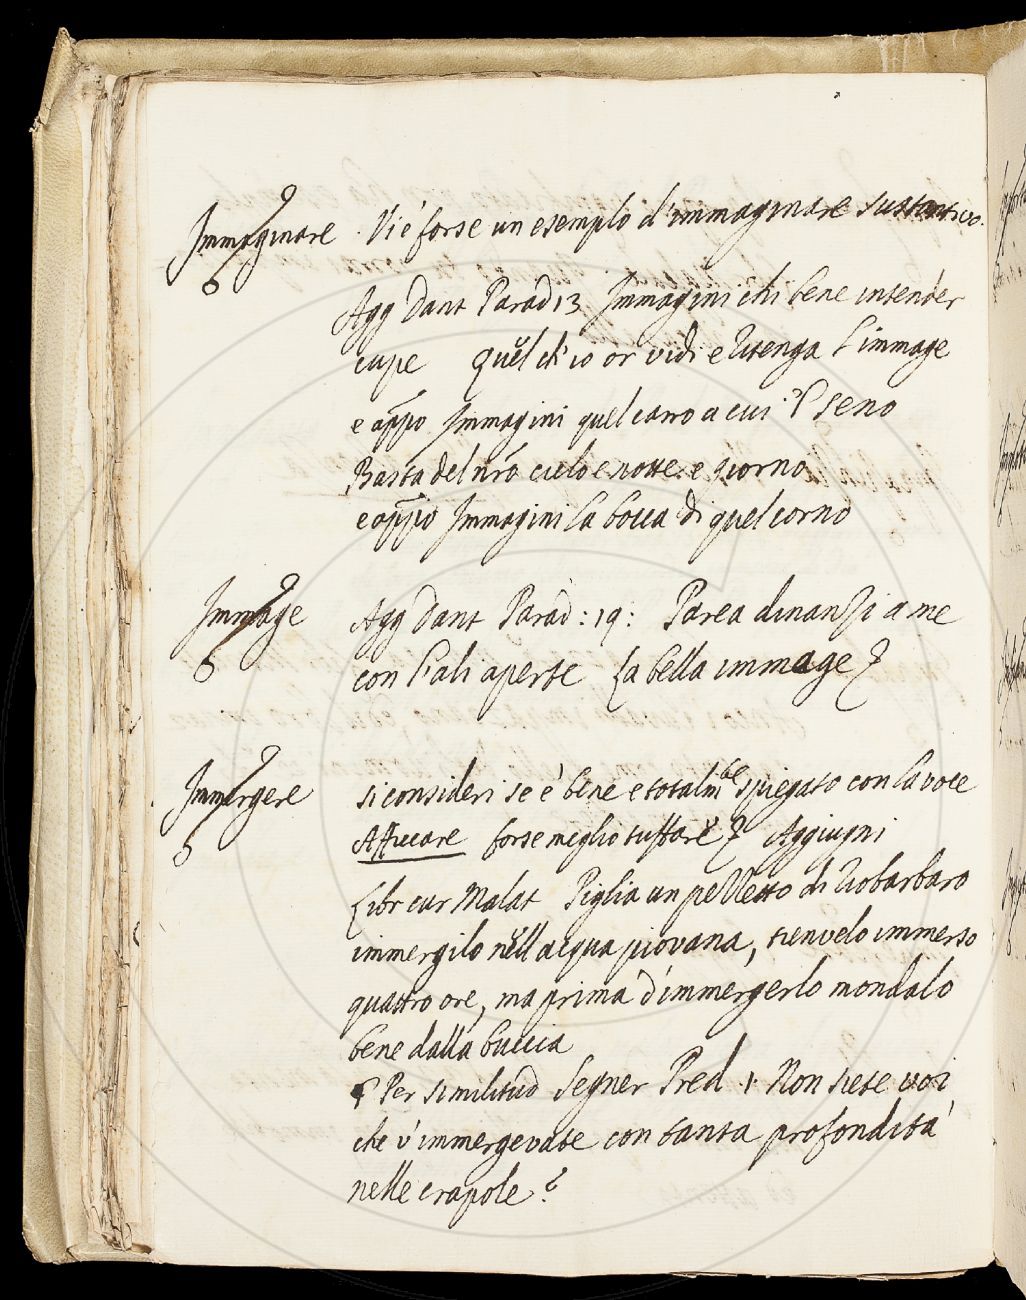 Immaginare . Vi è forse un esemplo d'immaginare sustantivo.
Agg Dant Parad 13 Immagini chi bene intender
cupe quel ch'io or vidi e ritenga l'immage
e appo Immagini quel carro a cui 'l seno
Basta del nro cielo e notte e giorno
e appo Immagini la bocca di quel corno
Immage Agg Dant Parad: 19: Parea dinanzi a me
con l'ali aperte La bella immage
Immergere si consideri se è bene e totalmte spiegato con la voce
Afficcare forse meglio tuffare Aggiugni
Libr cur Malat Piglia un pezzetto di riobarbaro
immergilo nell acqua piovana, tienvelo immerso
quattro ore, ma prima d'immergerlo mondalo
bene dalla buccia
Per similitud Segner Pred 1 Non siete voi
che v'immergevate con tanta profondità
nelle crapole?